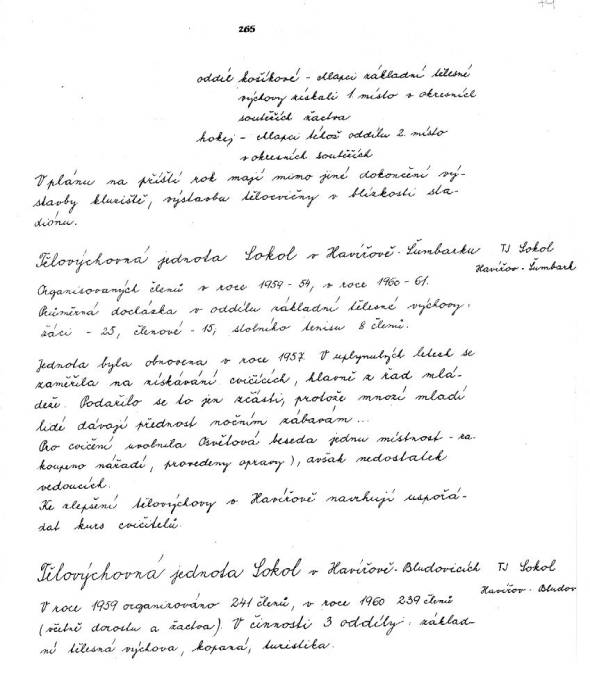 265
oddíl košíkové - Mapci základní tělesné
výchovy získali 1 místo v okresních
soutěžích žactva
hokej - Mapci téhož oddílu 2. místo
v okresních soutěžích
V plánu na příští rok mají mimo jiné dokončení vý-
stavby kluziště, výstavbu tělocvičny v blízkosti sta-
diónu.
Tělovýchovná jednota Sokol v Havířově-Šumbarku TJ Sokol
Havířov-Šumbark
Organisovaných členů v roce 1959 - 54, v roce 1960 - 61.
Průměrná docházka v oddílu základní tělesné výchovy:
žáci - 25, členové - 15, stolního tenisu 8 členů.
Jednota byla obnovena v roce 1957. V uplynulých letech se
zaměřila na získávání cvičících, hlavně z řad mlá-
deže. Podařilo se to jen zčásti, protože mnozí mladí
lidé dávají přednost nočním zábavám...
Pro cvičení uvolnila Osvětová beseda jednu místnost - za-
koupeno nářadí, provedeny opravy), avšak nedostatek
vedoucích.
Ke zlepšení tělovýchovy v Havířově navrhují uspořá-
dat kurs cvičitelů.
Tělovýchovná jednota Sokol v Havířově-Bludovicích TJ Sokol
Havířov-Bludov
V roce 1959 organizováno 241 členů, v roce 1960 239 členů
(včetně dorostu a žactva) V činnosti 3 oddíly: základ-
ní tělesná výchova, kopaná, turistika.